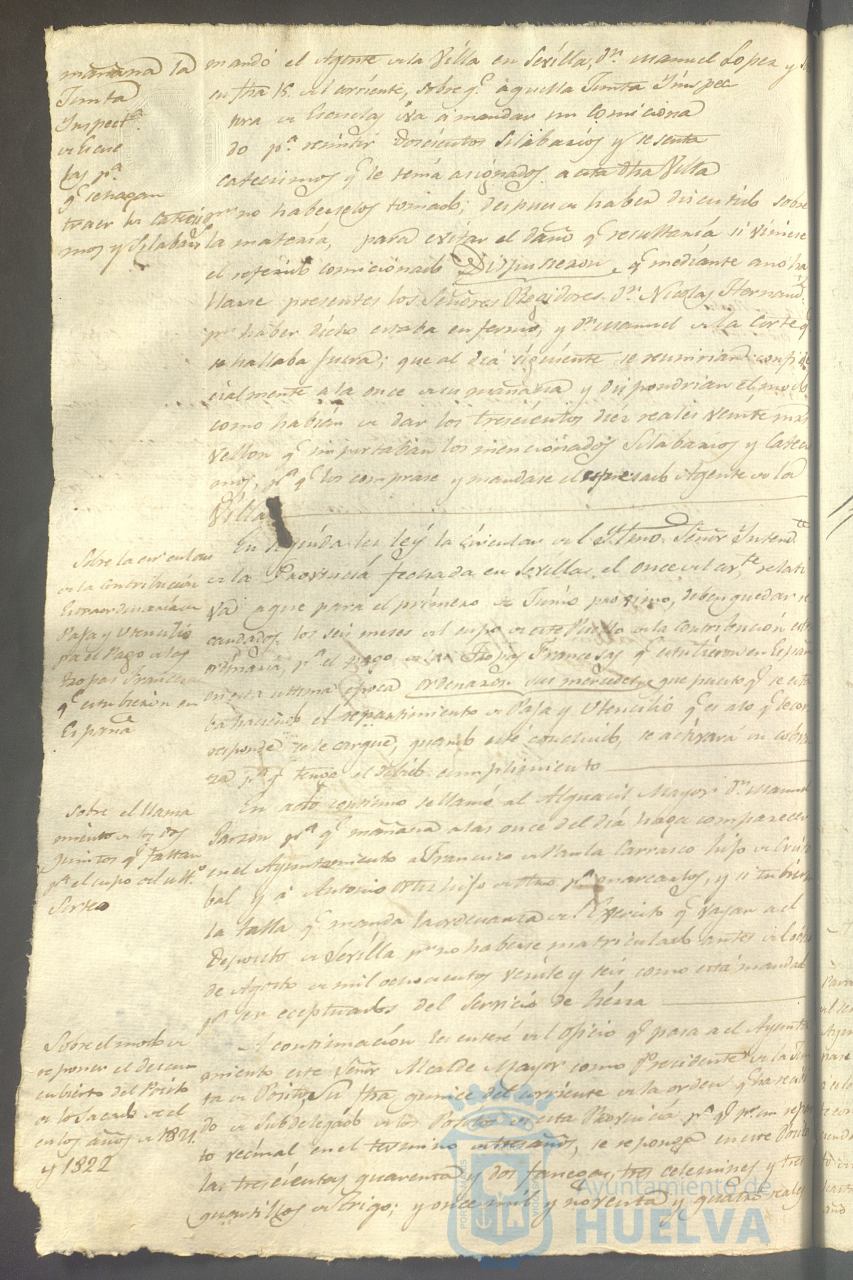 mañana la
Junta
Inspect.ª
de Escue
las p.ª
q.e se hagan
traer los Cateci
mos y Silabar.s
mandó el Agente de la Villa en Sevilla, D.n Manuel Lopez y
en fha 15 del corriente, sobre q.e aquella Junta Ynspec
tora de Escuelas iva á mandar un Comiciona
do p.a remitir doscientos Silabarios y sesenta
catecismos q.e le tenia asignados a esta dha Villa
p.r no haberselos tomado; despues de haber discutido sobre
la materia, para evitar el daño q.e resultaria si viniese
el referido comicionado Dispusieron q.e mediante a no ha
llarse presentes los Señores Regidores D.n Nicolas Hernand.z
p.r haber dicho estaba enfermo, y D.n Manuel de la Corte q.e
se hallaba fuera; que al dia siguiente se reunirian
cialmente a la once de su mañana y dispondrian el modo
como habian de dar los trescientos diez reales veinte mrs
vellon q.e importaban los mencionados Silabarios y Catecis
mos, p.a q.e los comprase y mandase el espresado Agente de la
Villa
Sobre la circular
de la Contribucion
Extraordinaria de
Paja y Utencilio
pa el Pago a las
tropas Francesas
q.e estubieron en
España
En seguida les leý la circular del Yltmo. Señor Yntend.te
de la Provincia fechada en Sevilla el once del cor.te relati
va a que para el primero de Junio proximo, deben quedar re
caudados los seis meses del cupo de este Pueblo de la contribucion estra
ordinaria, p.a el pago de las Tropas Francesas q.e estubieron en España
en esta ultima epoca ordenaron sus mercedes que puesto q.e se esta
ba haciendo el repartimiento de Paja y Utencilio q.e es a lo q.e le cor
responde se le cargue, quando este concluido, se activará su cobran
za p.a q.e tenga el debido cumplimiento
Sobre el llama
miento de los dos
quintos q.e faltan
p.a el cupo del ult.o
Sorteo
En acto continuo se llamó al Alguacil Mayor D.n Manuel
Garzon p.a q.e mañana a las once del dia haga comparecer
en el Ayuntamiento a Francisco de Paula Carrasco hijo de Cristo
bal y á Antonio Ortiz hijo de p.a marcarlos, y si tubieren
la talla q.e manda la ordenanza del Exercito q.e vayan a el
Deposito de Sevilla p.r no haberse matriculado antes del
de Agosto de mil ochocientos veinte y seis como está mandado
p.a ser eceptuados del Servicio de tierra
Sobre el modo de
reponer el descu
cubierto del Posito
de lo Sacado de el
en los años de 1821.
y 1822
A continuacion les enteré del oficio q.e pasa a el Ayunta
miento este Señor Alcalde Mayor como Precidente de la Jun
ta de Positos Su fha quince del corriente de la orden q.e ha recibi
do de Subdelegado de los Positos de esta Provincia p.a q.e p.r un repar
to vecinal en el termino de tres años, se reponga en este Posito
las trescientas quarenta y dos fanegas tres celemines y tres
quartillos de trigo; y once mil y noventa y quatro reales
Ayuntamiento de
HUELVA